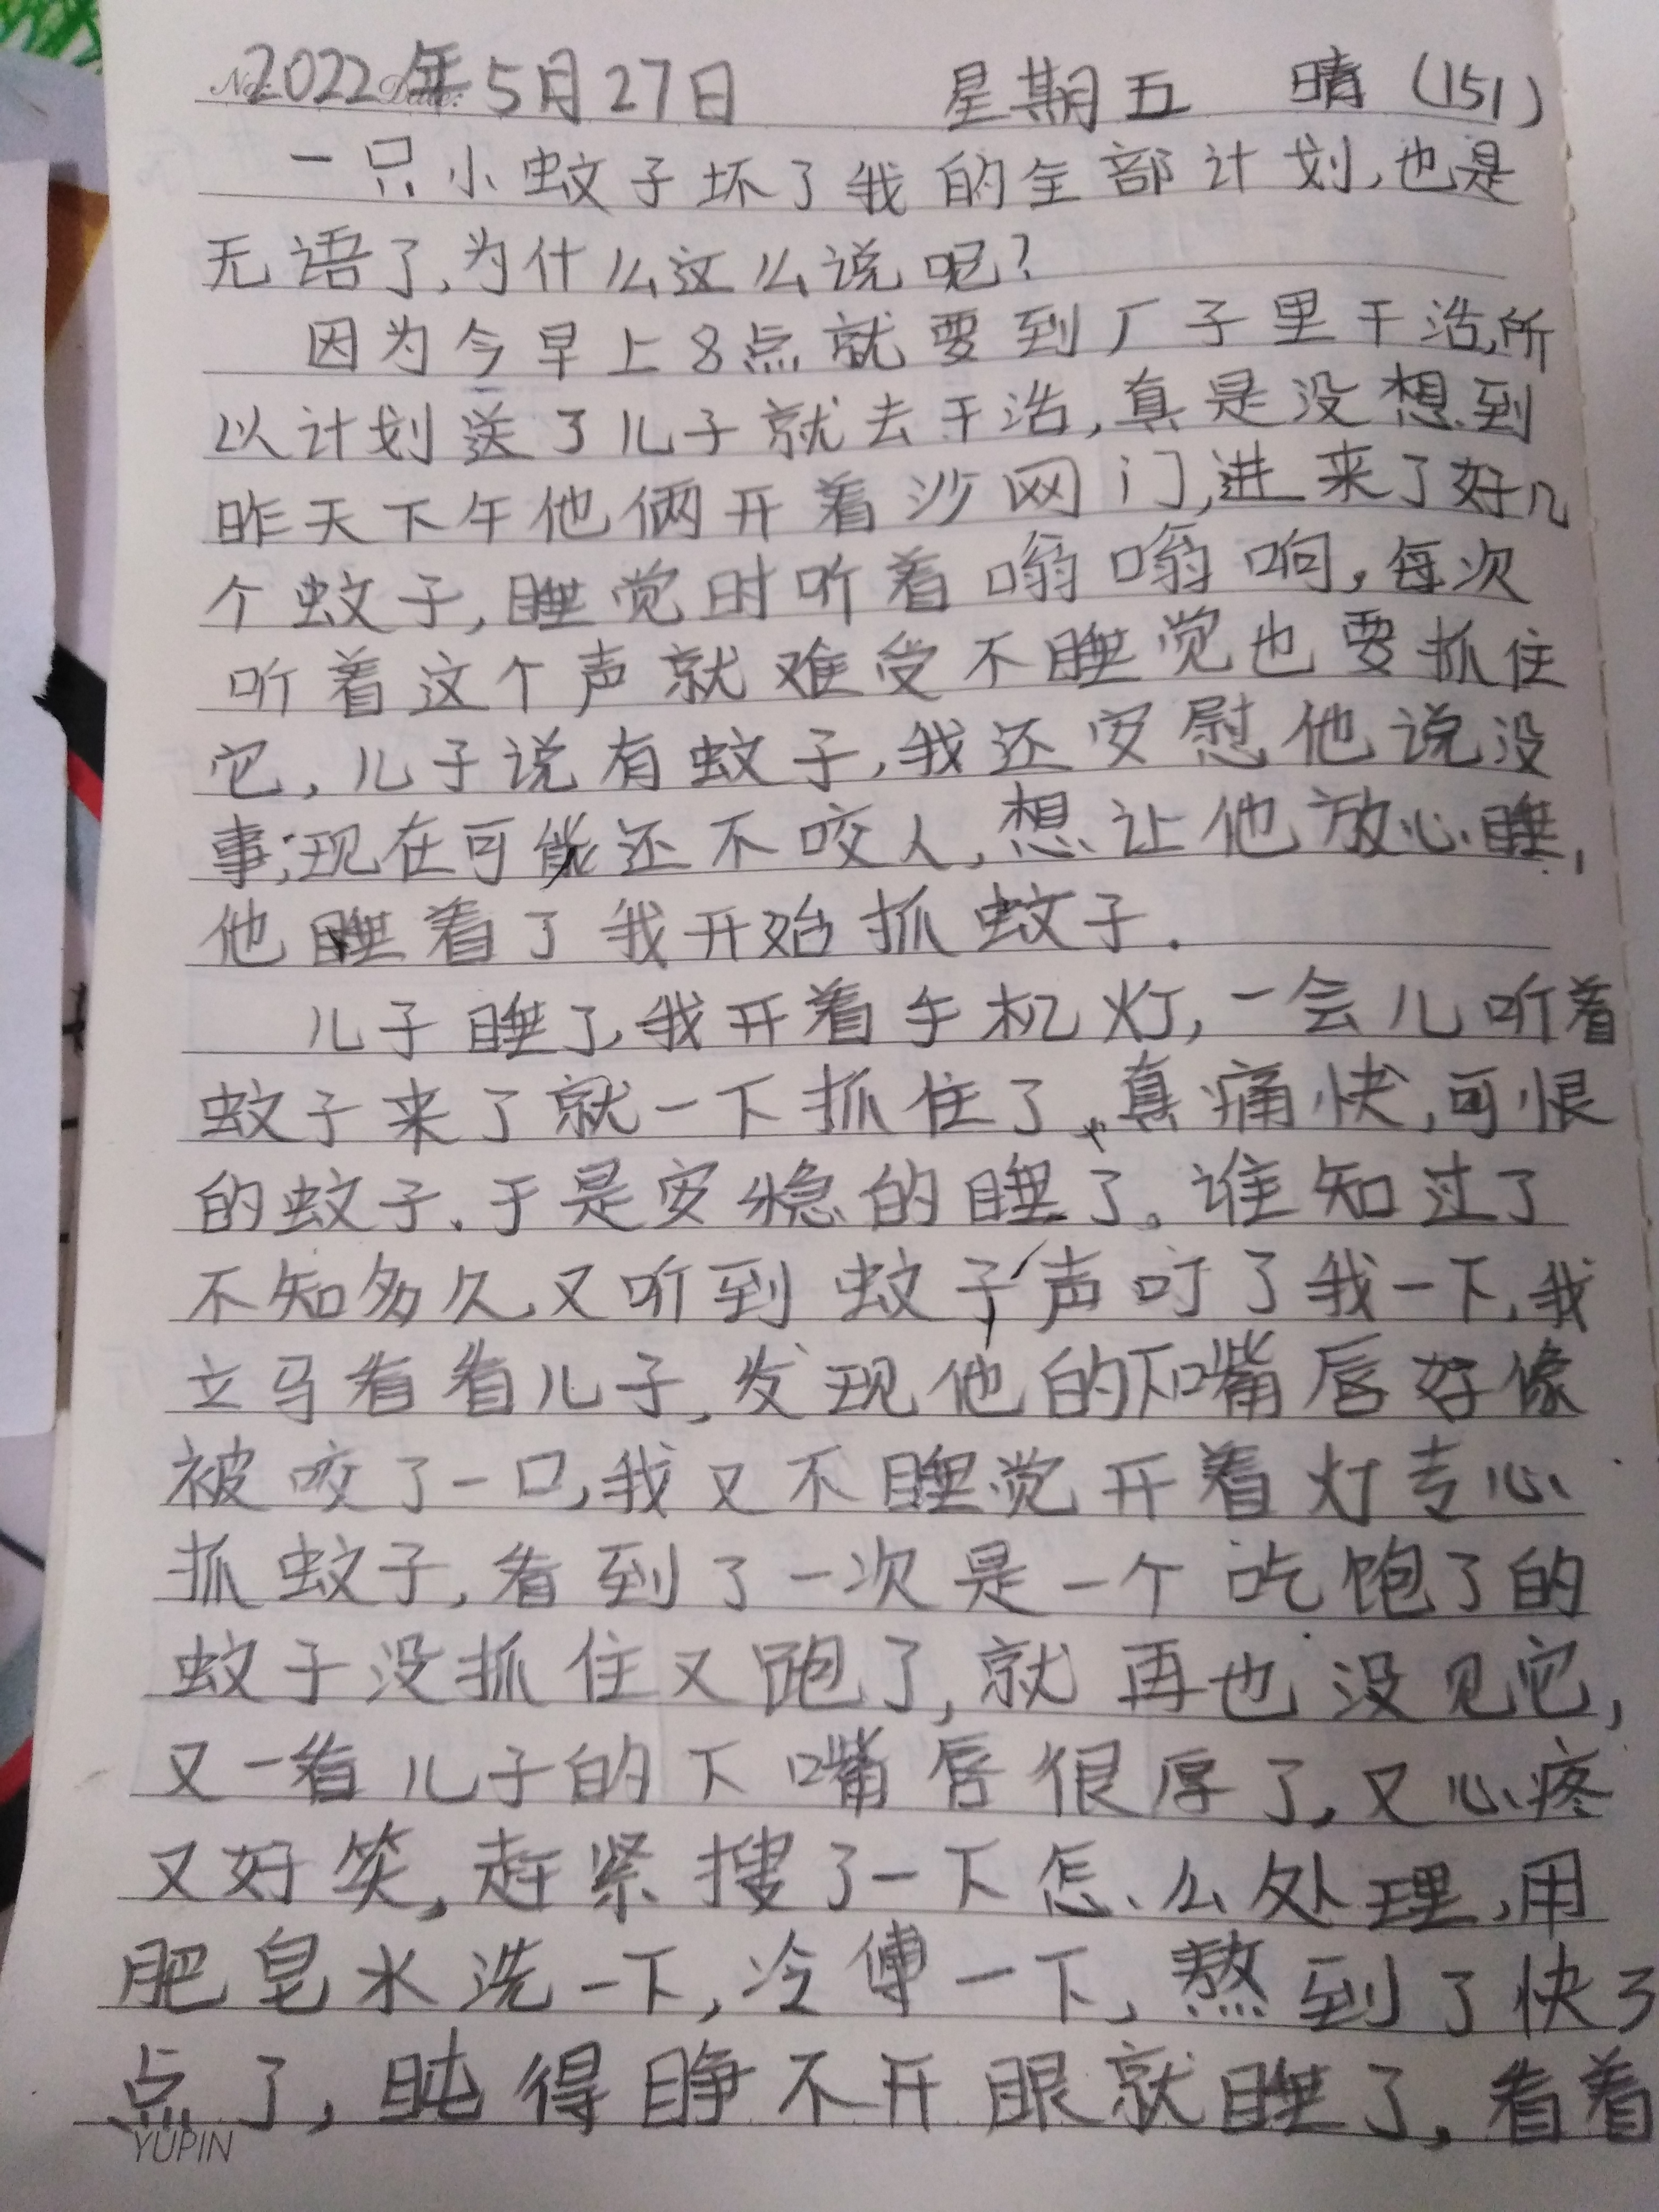 2022年5月27日 星期五 晴(151)
一只小蚊子坏了我的全部计划,也是
无语了,为什么这么说呢?
因为今早上8点就要到厂子里干活,所
以计划送了儿子就去干活,真是没想到
昨天下午他俩开着沙网门,进来了好几
个蚊子,睡觉时听着嗡嗡响,每次
听着这个声就难受不睡觉也要抓住
它,儿子说有蚊子,我还安慰他说没
事;现在可能还不咬人,想让他放心睡,
他睡着了我开始抓蚊子.
儿子睡了,我开着手机灯,一会儿听着
蚊子来了就一下抓住了,真痛快,可恨
的蚊子.于是安稳的睡了。谁知过了
不知多久,又听到蚊子声叮了我一下,我
立马看看儿子,发现他的下嘴唇好像
被咬了一口,我又不睡觉开着灯专心
抓蚊子,看到了一次是一个吃饱了的
蚊子没抓住又跑了,就再也没见它,
又一看儿子的下嘴唇很厚了,又心疼
又好笑,赶紧搜了一下怎么处理,用
肥皂水洗一下,冷傅一下,熬到了快3
点了,盹得睁不开眼就睡了,看着
YUPIN